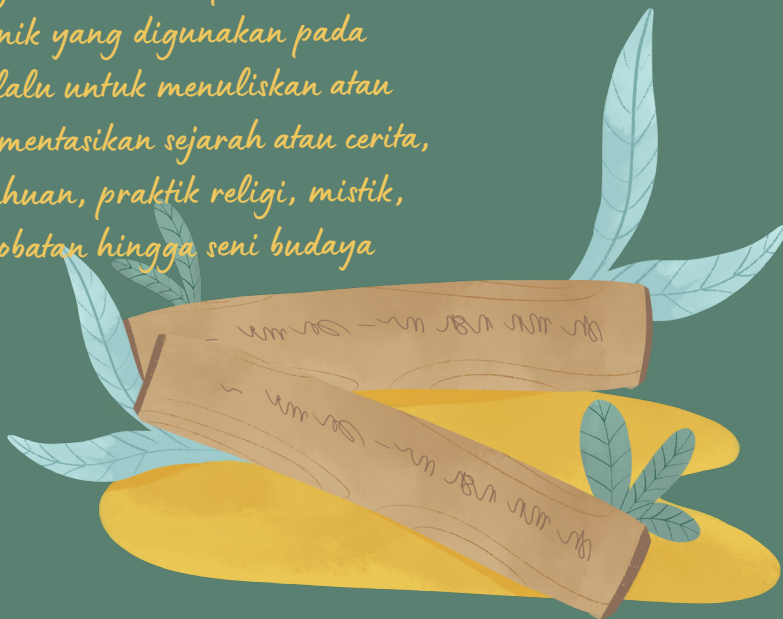 nik yang digunakan pada
lalu untuk menuliskan atau
mentasikan sejarah atau cerita,
huan, praktik religi, mistik,
obatan hingga seni budaya